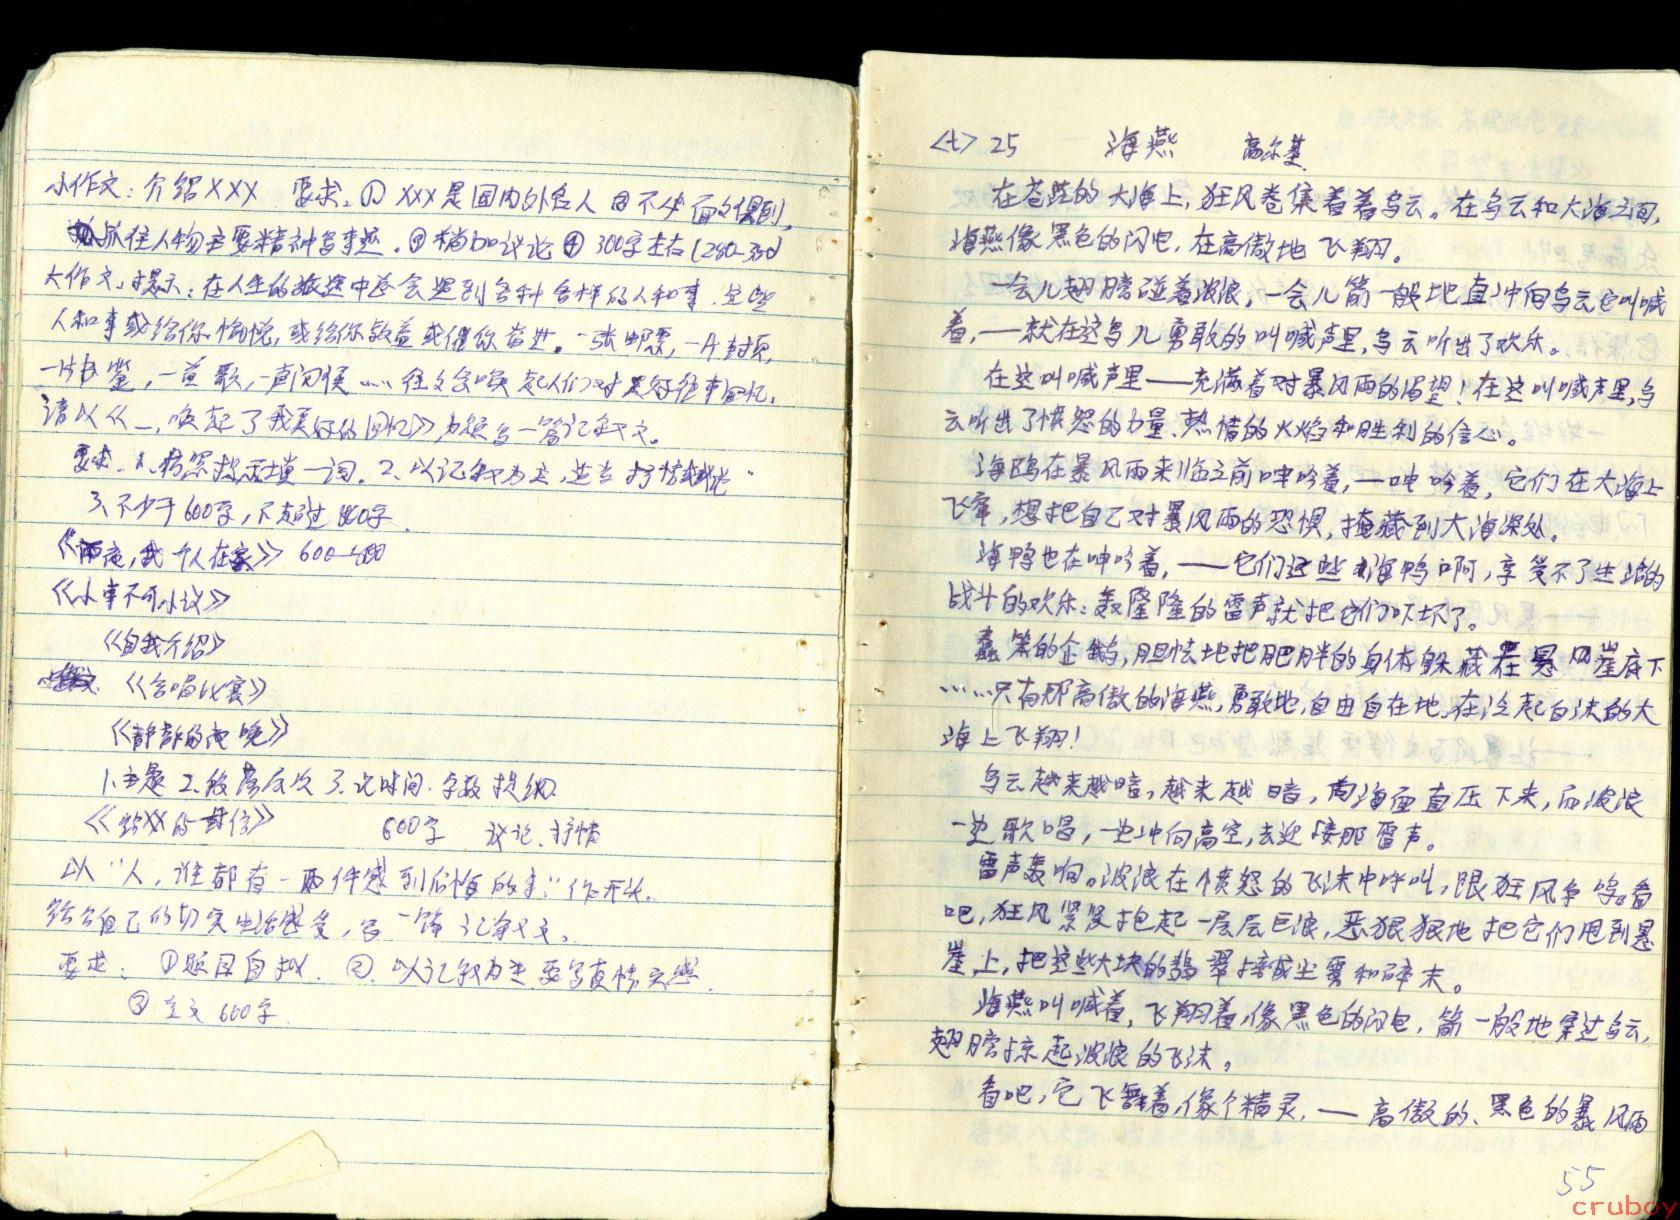 小作文：介绍XXX 要求：① XXX是国内外名人 ②不必面面俱到，
抓住人物主要精神与事迹。③稍加议论 ④ 300字左右(280-350)
大作文：提示：在人生的旅途中总会遇到各种各样的人和事，这些
人和事或给你愉悦，或给你教益或催你奋进。一张邮票，一片封页，
一首歌，一声问候……往往会唤起人们对美好往事回忆，
请以《＿，唤起了我美好的回忆》为题写一篇记叙文。
要求：1、填一词。2、以记叙为主，适当抒情或议论
3、不少于600字，不超过800字
《雨夜，我一个人在家》 600—800
《小事不可小议》
《自我介绍》
《合唱比赛》
《静静的夜晚》
1.主题 2.段落层次 3.记时间.字数提纲
《给XX的一封信》 600字 议论.抒情
以“人，谁都有一两件感到后悔的事”作开头.
结合自己的切实生活感受，写一篇记叙文。
要求：①题目自拟. ②.以记叙为主要写真情实感.
③全文600字
<七> 25 海燕 高尔基
在苍茫的大海上，狂风卷集着着乌云。在乌云和大海之间，
海燕像黑色的闪电，在高傲地飞翔。
一会儿翅膀碰着波浪，一会儿箭一般地直冲向乌云它叫喊
着，——就在这鸟儿勇敢的叫喊声里，乌云听出了欢乐。
在这叫喊声里——充满着对暴风雨的渴望！在这叫喊声里，乌
云听出了愤怒的力量、热情的火焰和胜利的信心。
海鸥在暴风雨来临之前呻吟着，—呻吟着，它们在大海上
飞窜，想把自己对暴风雨的恐惧，掩藏到大海深处。
海鸭也在呻吟着，——它们这些海鸭啊，享受不了生活的
战斗的欢乐：轰隆隆的雷声就把它们吓坏了。
蠢笨的企鹅，胆怯地把肥胖的身体躲藏在悬崖底下
……只有那高傲的海燕，勇敢地，自由自在地，在泛起白沫的大
海上飞翔！
乌云越来越暗，越来越暗，向海面直压下来，而波浪
一边歌唱，一边冲向高空，去迎接那雷声。
雷声轰响。波浪在愤怒的飞沫中呼叫，跟狂风争鸣。看
吧，狂风紧紧抱起一层层巨浪，恶狠狠地把它们甩到悬
崖上，把这些大块的翡翠摔成尘雾和碎末。
海燕叫喊着，飞翔着，像黑色的闪电，箭一般地穿过乌云，
翅膀掠起波浪的飞沫。
看吧，它飞舞着，像个精灵，——高傲的、黑色的暴风雨
55
cruboy